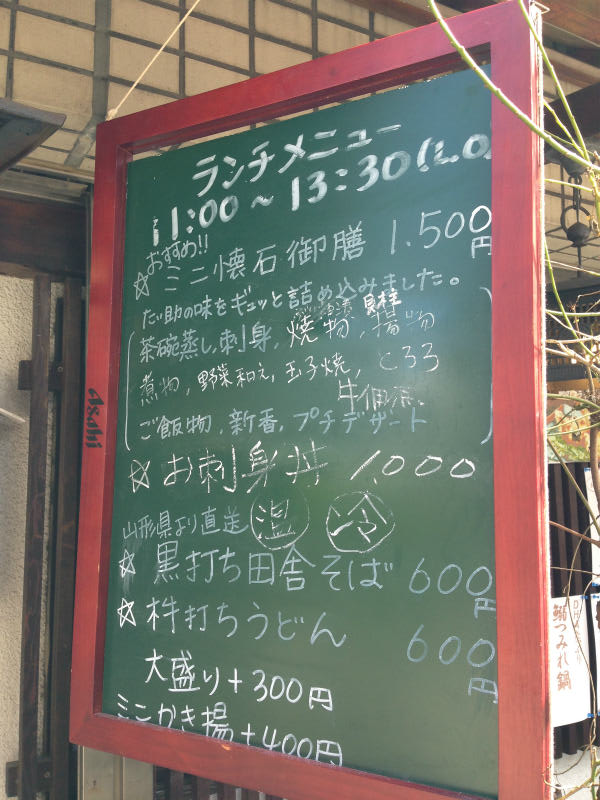 ランチメニュー
11:00～13:30(L.O
おすすめ!!
☆ミニ懐石御膳 1.500円
だい助の味をギュッと詰め込みました。
茶碗蒸し,刺身,焼物,揚物
煮物,野菜和え,玉子焼,とろろ
牛佃煮、
ご飯物,新香,プチデザート
☆お刺身丼 1,000
山形県より直送 温 冷
☆黒打ち田舎そば 600円
☆杵打ちうどん 600円
大盛り+300円
ミニかき揚+400円
Asahi
鰯つみれ鍋